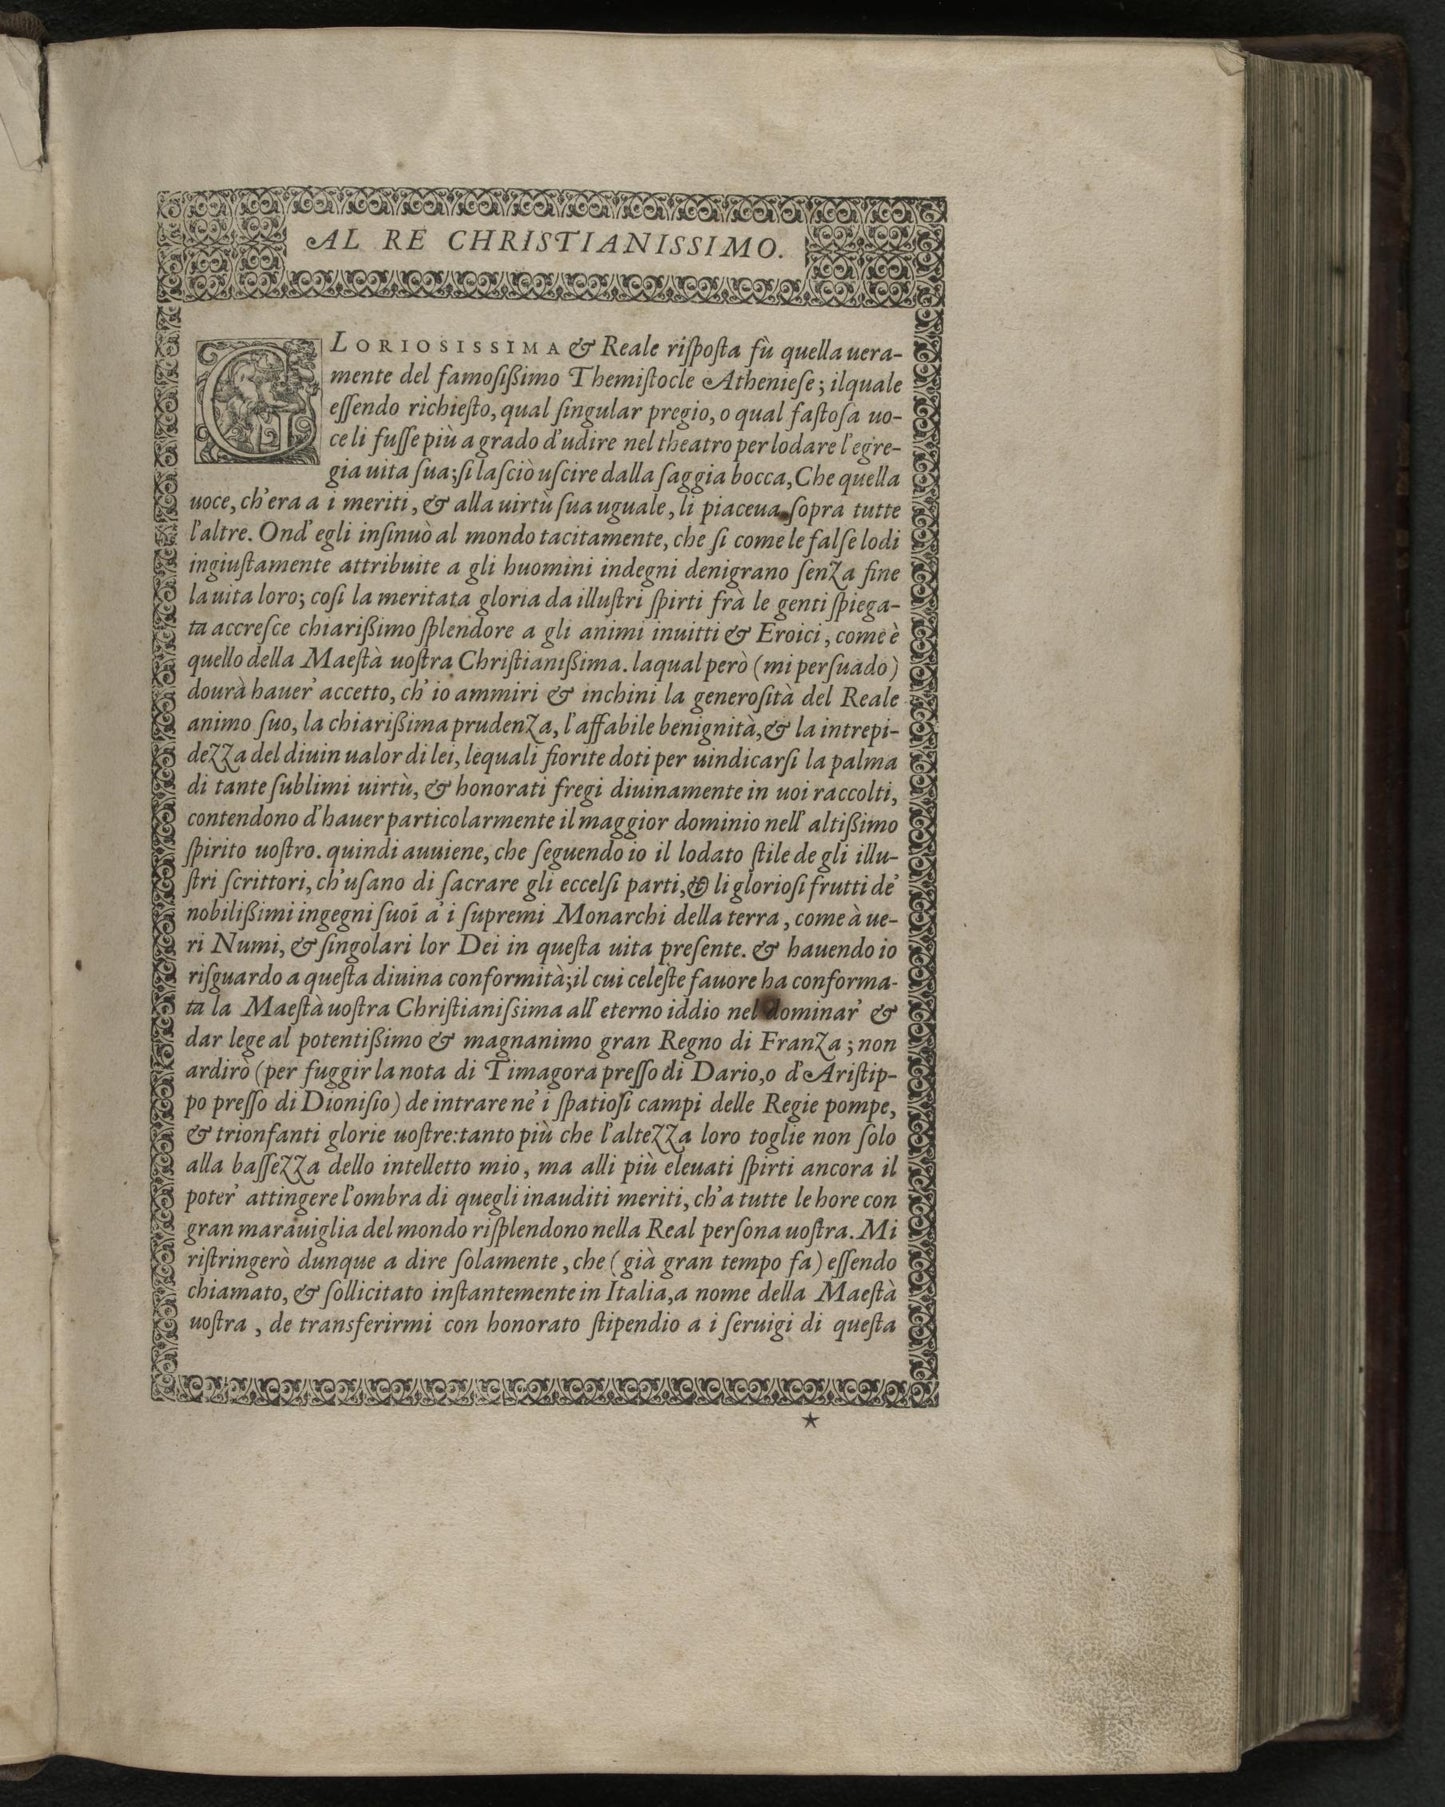 AL RE CHRISTIANISSIMO.
GLORIOSISSIMA & Reale riſpoſta fù quella uera-
mente del famoſiſſimo Themiſtocle Athenieſe; ilquale
eſſendo richieſto, qual ſingular pregio, o qual faſtoſa uo-
ce li fuſſe più a grado d'udire nel theatro per lodare l'egre-
gia uita ſua; ſi laſciò uſcire dalla ſaggia bocca, Che quella
uoce, ch'era a i meriti, & alla uirtù ſua uguale, li piaceua ſopra tutte
l'altre. Ond' egli inſinuò al mondo tacitamente, che ſi come le falſe lodi
ingiuſtamente attribuite a gli huomini indegni denigrano ſenza fine
la uita loro; coſi la meritata gloria da illuſtri ſpirti frà le genti ſpiega-
ta accreſce chiariſſimo ſplendore a gli animi inuitti & Eroici, come è
quello della Maeſtà uoſtra Chriſtianiſſima. laqual però (mi perſuado)
dourà hauer' accetto, ch' io ammiri & inchini la generoſità del Reale
animo ſuo, la chiariſſima prudenza, l'affabile benignità, & la intrepi-
dezza del diuin ualor di lei, lequali fiorite doti per uindicarſi la palma
di tante ſublimi uirtù, & honorati fregi diuinamente in uoi raccolti,
contendono d'hauer particolarmente il maggior dominio nell' altiſſimo
ſpirito uoſtro. quindi auuiene, che ſeguendo io il lodato ſtile de gli illu-
ſtri ſcrittori, ch'uſano di ſacrare gli eccelſi parti, & li glorioſi frutti de'
nobiliſſimi ingegni ſuoi a' i ſupremi Monarchi della terra, come à ue-
ri Numi, & ſingolari lor Dei in queſta uita preſente. & hauendo io
riſguardo a queſta diuina conformità; il cui celeſte fauore ha conforma-
ta la Maeſtà uoſtra Chriſtianiſsima all' eterno iddio nel dominar' &
dar lege al potentiſſimo & magnanimo gran Regno di Franza; non
ardirò (per fuggir la nota di Timagora preſſo di Dario, o d'Ariſtip-
po preſſo di Dioniſio) de intrare ne' i ſpatioſi campi delle Regie pompe,
& trionfanti glorie uoſtre: tanto più che l'altezza loro toglie non ſolo
alla baſſezza dello intelletto mio, ma alli più eleuati ſpirti ancora il
poter' attingere l'ombra di quegli inauditi meriti, ch'a tutte le hore con
gran marauiglia del mondo riſplendono nella Real perſona uoſtra. Mi
riſtringerò dunque a dire ſolamente, che (già gran tempo fa) eſſendo
chiamato, & ſollicitato inſtantemente in Italia, a nome della Maeſtà
uoſtra, de transferirmi con honorato ſtipendio a i ſeruigi di queſta
★